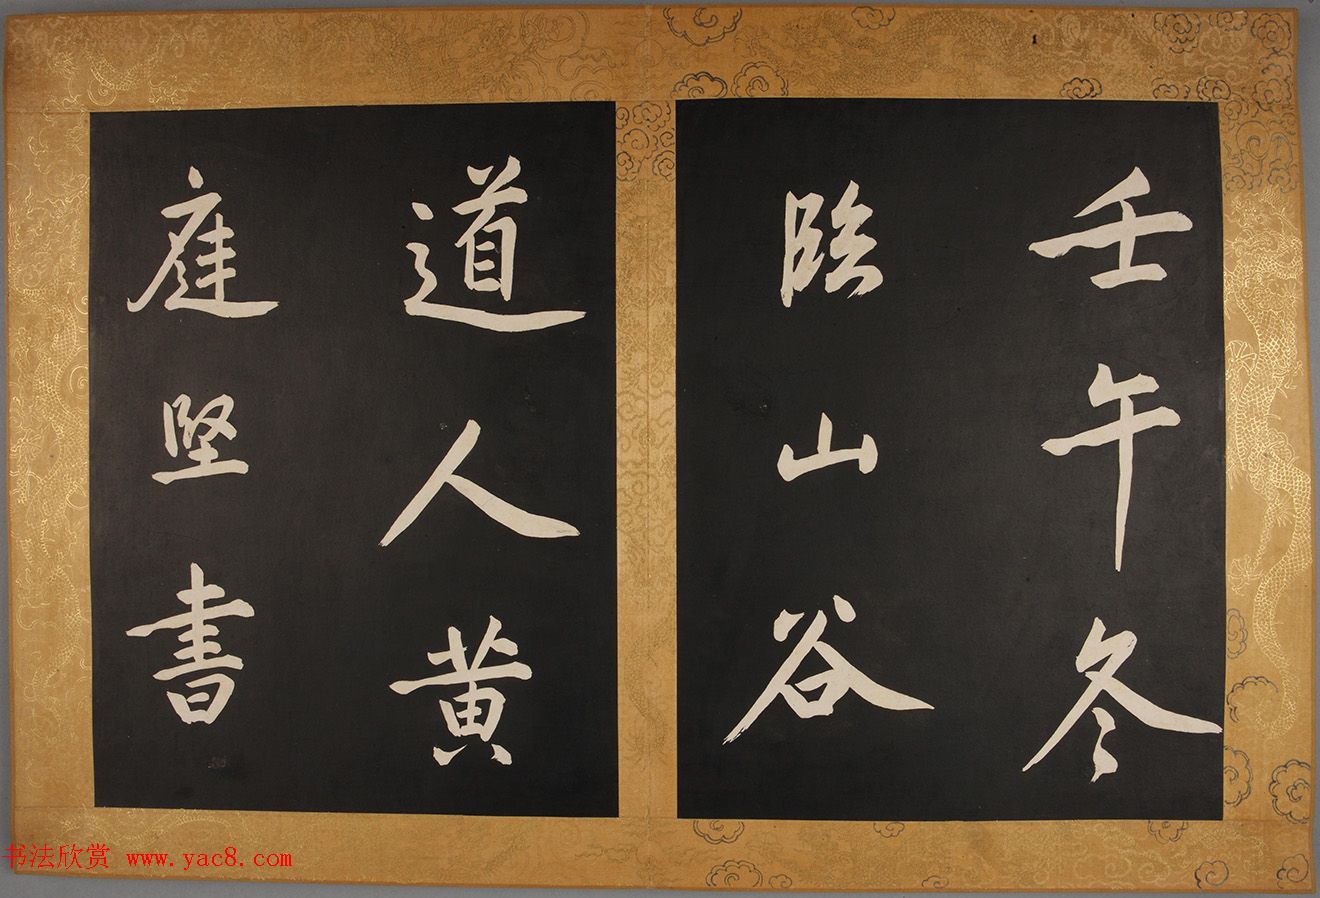 壬午冬
臨山谷
道人黄
庭堅書
书法欣赏 www.yac8.com